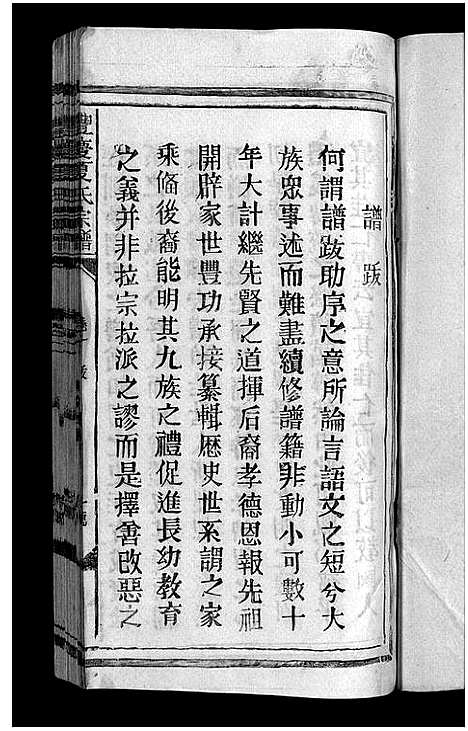 譜跋
何謂譜跋助序之意所論言語文之短兮大
族衆事述而難盡續修譜籍非動小可數十
年大計繼先賢之道揮后裔孝德恩報先祖
開辟家世豐功承接纂輯歷史世系謂之家
乘俻後裔能明其九族之禮促進長幼教育
之義并非拉宗拉派之謬而是擇善改惡之
豐慶夏氏宗譜